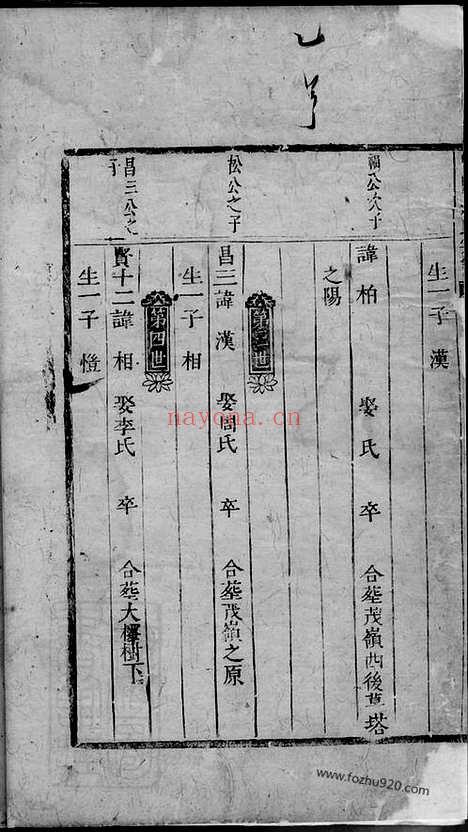 生一子漢
福公次子
諱柏 娶氏 卒 合葬茂嶺西後 塔
之陽
第三世
松公之子
昌三諱漢 娶周氏 卒 合葬茂嶺之原
生一子相
第四世
昌三公之
子
賢十二諱相 娶李氏 卒 合葬大樹下
生一子憕
nayona.cn
www.fozhu920.com